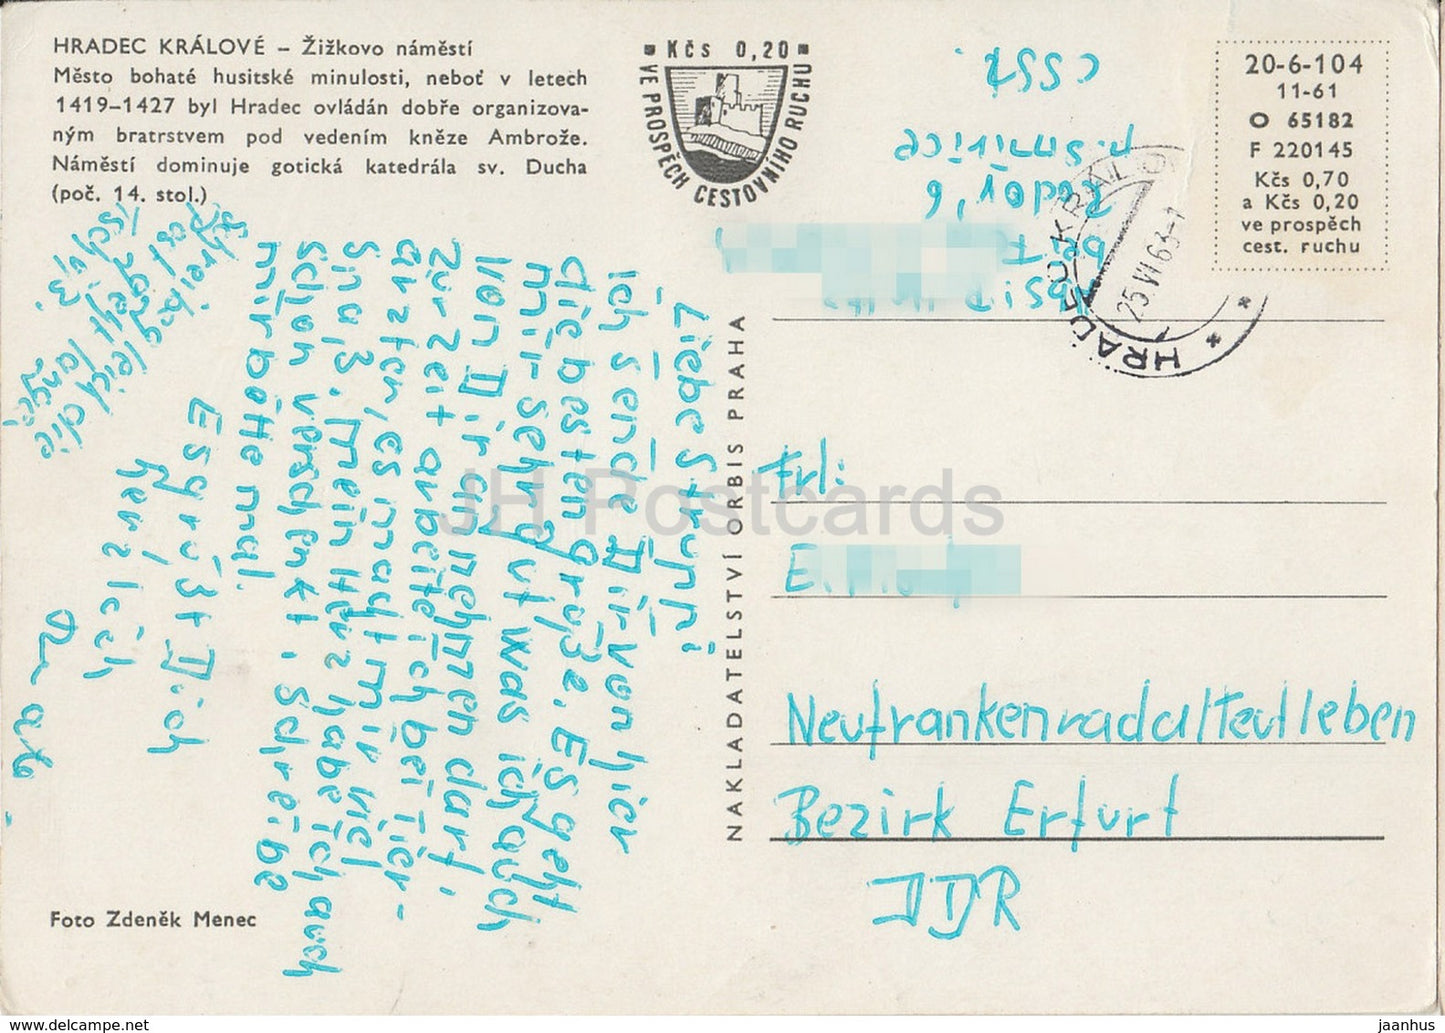 HRADEC KRÁLOVÉ – Žižkovo náměstí
Město bohaté husitské minulosti, neboť v letech
1419–1427 byl Hradec ovládán dobře organizova-
ným bratrstvem pod vedením kněze Ambrože.
Náměstí dominuje gotická katedrála sv. Ducha
(poč. 14. stol.)
Kčs 0,20
VE PROSPĚCH CESTOVNÍHO RUCHU
20-6-104
11-61
O 65182
F 220145
Kčs 0,70
a Kčs 0,20
ve prospěch
cest. ruchu
HRADEC KRÁLOVÉ
25.VI.63-1
bei
6
p. Smiřice
ČSSR.
Liebe Struppi
ich sende Dir von hier
die besten Grüße. Es geht
mir sehr gut was ich auch
von Dir annehmen darf.
Zur Zeit arbeite ich bei Tier-
ärzten, es macht mir viel
Spaß. Mein Herz habe ich auch
schon verschenkt. Schreibe
mir bitte mal.
Es grüßt Dich
herzlich
Schreib gleich die
Post geht lange
NAKLADATELSTVÍ ORBIS PRAHA
Frl:
E.
Neufrankenroda/Teutleben
Bezirk Erfurt
DDR
Foto Zdeněk Menec
JH Postcards
© https://jhpostcards.com
jaanhus